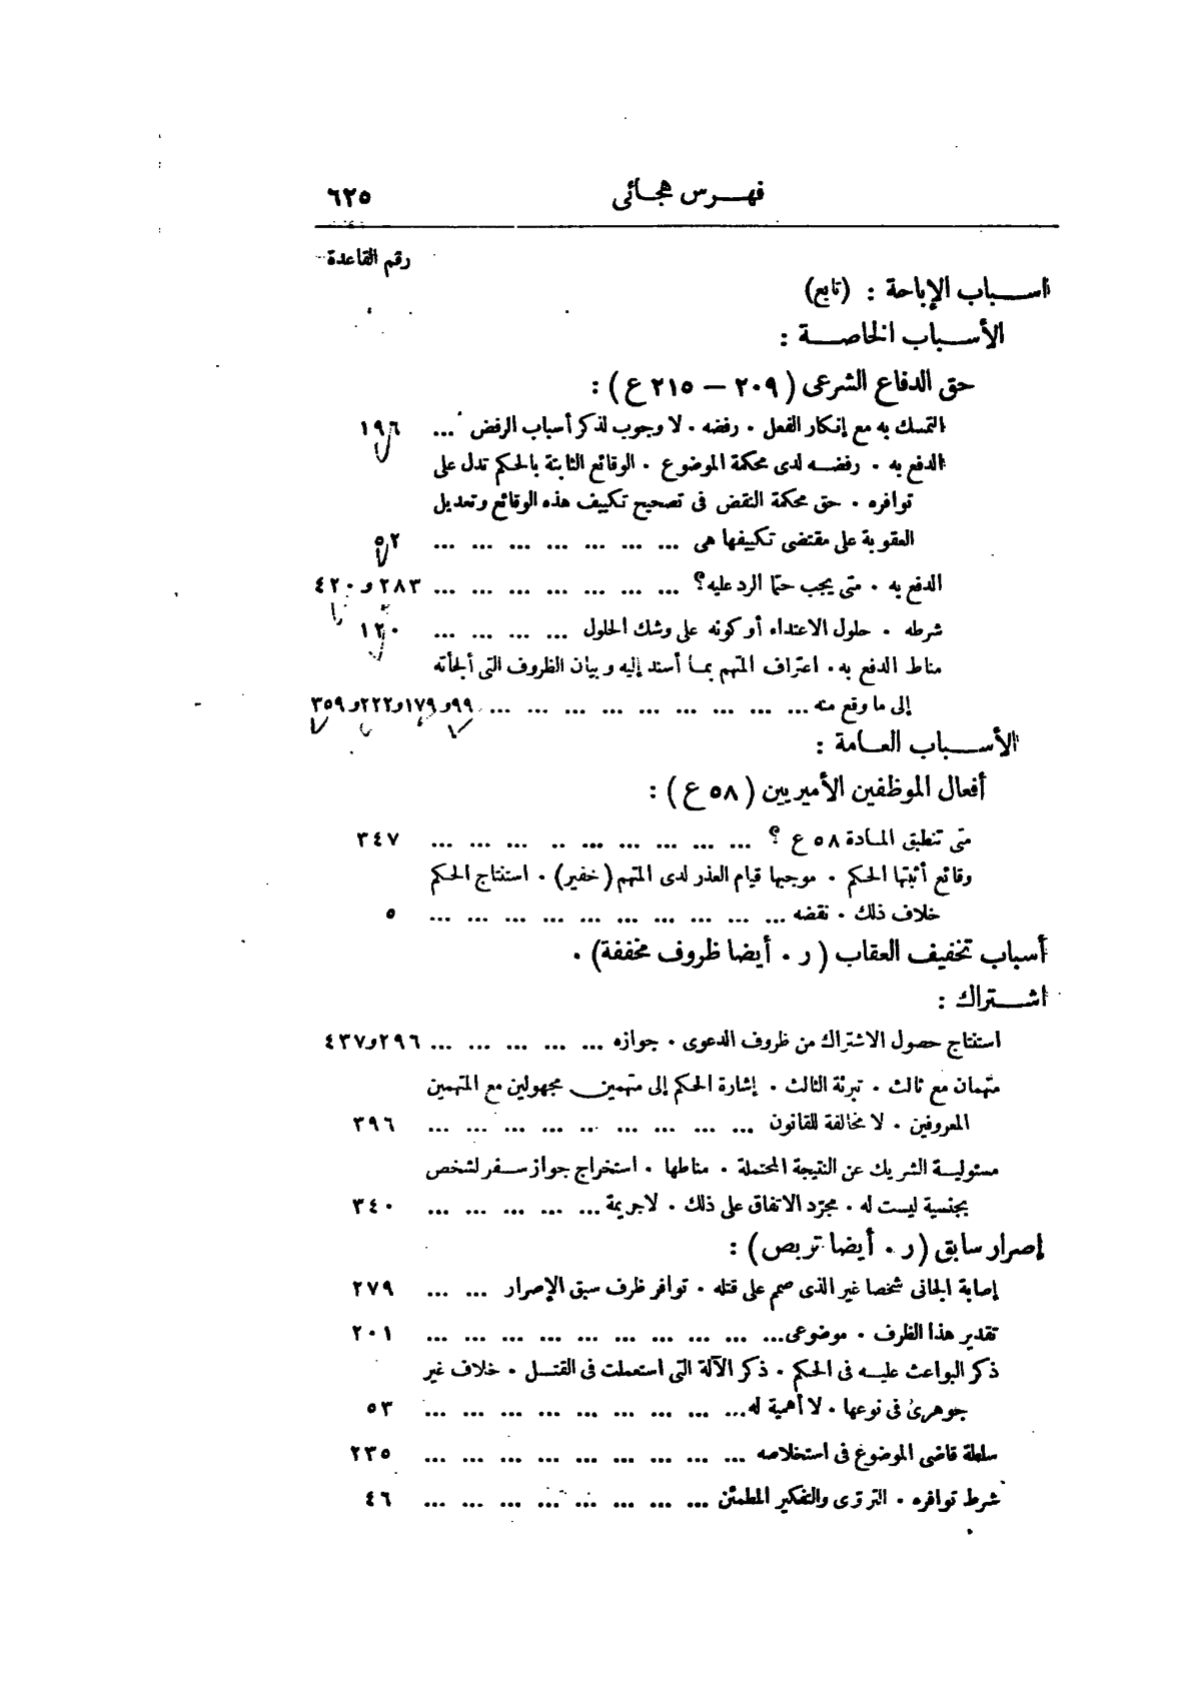 فهرس هجائى ٦٢٥
رقم القاعدة
أسباب الإباحة : (تابع)
الأسباب الخاصة :
حق الدفاع الشرعى (٢٠٩ — ٢١٥ ع) :
التمسك به مع إنكار الفعل . رفضه . لا وجوب لذكر أسباب الرفض ... ١٩٦
الدفع به . رفضه لدى محكمة الموضوع . الوقائع الثابتة بالحكم تدل على
توافره . حق محكمة النقض فى تصحيح تكييف هذه الوقائع وتعديل
العقوبة على مقتضى تكييفها هى ... ... ... ... ... ... ... ٥٢
الدفع به . متى يجب حتما الرد عليه؟ ... ... ... ... ... ... ... ٢٨٣ و ٤٢٠
شرطه . حلول الاعتداء أو كونه على وشك الحلول ... ... ... ... ١٢٠
مناط الدفع به . اعتراف المتهم بما أسند إليه وبيان الظروف التى ألجأته
إلى ما وقع منه ... ... ... ... ... ... ... ... ... ٩٩و١٧٩و٢٢٢و٣٥٩
الأسباب العامة :
أفعال الموظفين الأميريين (٥٨ ع) :
متى تنطبق المادة ٥٨ ع ؟ ... ... ... ... ... .. ... ... ... ٣٤٧
وقائع أثبتها الحكم . موجبها قيام العذر لدى المتهم (خفير) . استنتاج الحكم
خلاف ذلك . نقضه ... ... ... ... ... ... ... ... ... ... ٥
أسباب تخفيف العقاب (ر . أيضا ظروف مخففة) .
اشتراك :
استنتاج حصول الاشتراك من ظروف الدعوى . جوازه ... ... ... ... ... ٢٩٦و٤٣٧
متهمان مع ثالث . تبرئة الثالث . إشارة الحكم إلى متهمين مجهولين مع المتهمين
المعروفين . لا مخالفة للقانون ... ... ... ... .. ... ... ... ... ٣٩٦
مسئولية الشريك عن النتيجة المحتملة . مناطها . استخراج جواز سفر لشخص
بجنسية ليست له . مجرّد الاتفاق على ذلك . لا جريمة ... ... ... ... ... ٣٤٠
إصرار سابق (ر . أيضا تربص) :
إصابة الجانى شخصا غير الذى صمم على قتله . توافر ظرف سبق الإصرار ... ... ٢٧٩
تقدير هذا الظرف . موضوعى ... ... ... ... ... ... ... ... ... ... ٢٠١
ذكر البواعث عليه فى الحكم . ذكر الآلة التى استعملت فى القتل . خلاف غير
جوهرى فى نوعها . لا أهمية له ... ... ... ... ... ... ... ... ... ٥٣
سلطة قاضى الموضوع فى استخلاصه ... ... ... ... ... ... ... ... ... ٢٣٥
شرط توافره . التروّى والتفكير المطمئن ... ... ... ... ... ... ... ... ٤٦